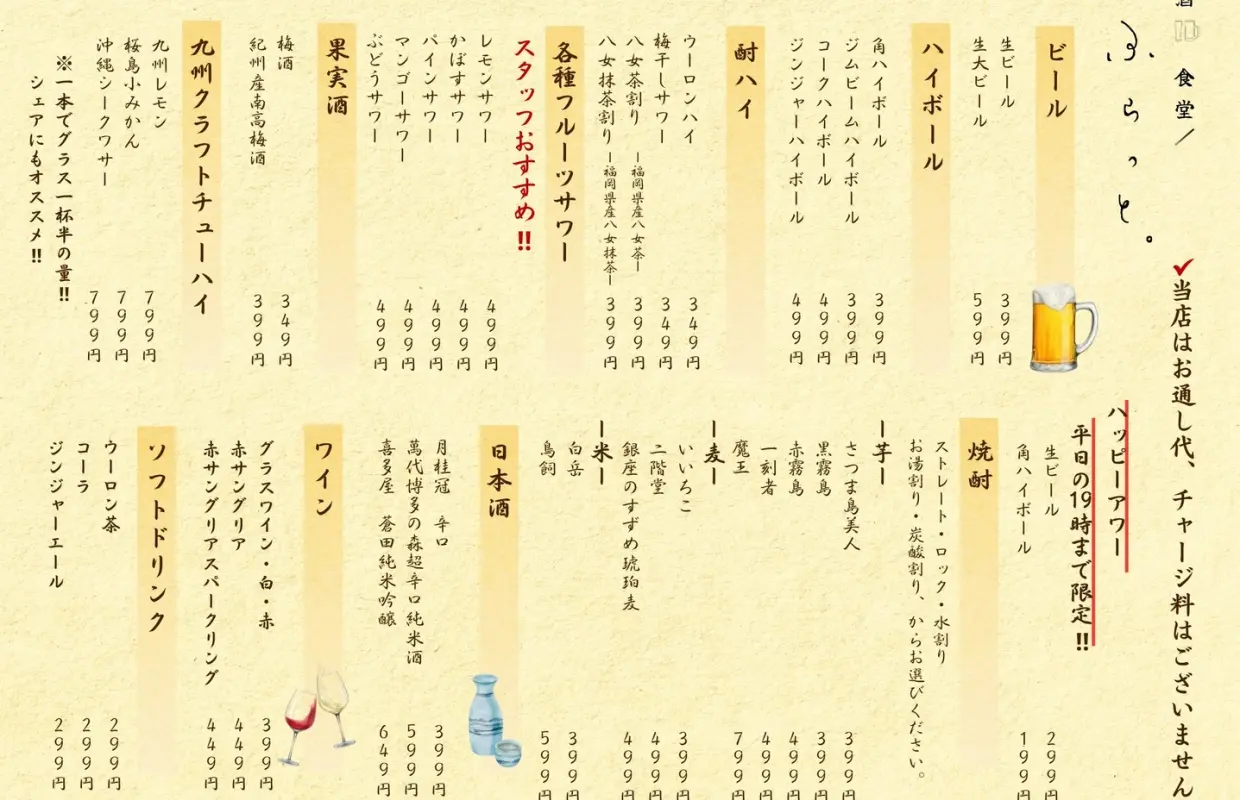 食堂／
ふらっと。
✓当店はお通し代、チャージ料はございません
ビール
生ビール 399円
生大ビール 599円
ハイボール
角ハイボール 399円
ジムビームハイボール 399円
コークハイボール 499円
ジンジャーハイボール 499円
酎ハイ
ウーロンハイ 349円
梅干しサワー 349円
八女茶割り ー福岡県産八女茶ー 399円
八女抹茶割り ー福岡県産八女抹茶ー 399円
各種フルーツサワー
スタッフおすすめ!!
レモンサワー 499円
かぼすサワー 499円
パインサワー 499円
マンゴーサワー 499円
ぶどうサワー 499円
果実酒
梅酒 349円
紀州産南高梅酒 399円
九州クラフトチューハイ
九州レモン 799円
桜島小みかん 799円
沖縄シークワサー 799円
※一本でグラス一杯半の量!!
シェアにもオススメ!!
ハッピーアワー
平日の19時まで限定!!
生ビール 299円
角ハイボール 199円
焼酎
ストレート・ロック・水割り
お湯割り・炭酸割り、からお選びください。
ー芋ー
さつま島美人 399円
黒霧島 399円
赤霧島 499円
一刻者 499円
魔王 799円
ー麦ー
いいちこ 399円
二階堂 499円
銀座のすずめ琥珀麦 499円
ー米ー
白岳 399円
鳥飼 599円
日本酒
月桂冠 辛口 399円
萬代博多の森超辛口純米酒 599円
喜多屋 蒼田純米吟醸 649円
ワイン
グラスワイン・白・赤 399円
赤サングリア 449円
赤サングリアスパークリング 449円
ソフトドリンク
ウーロン茶 299円
コーラ 299円
ジンジャーエール 299円